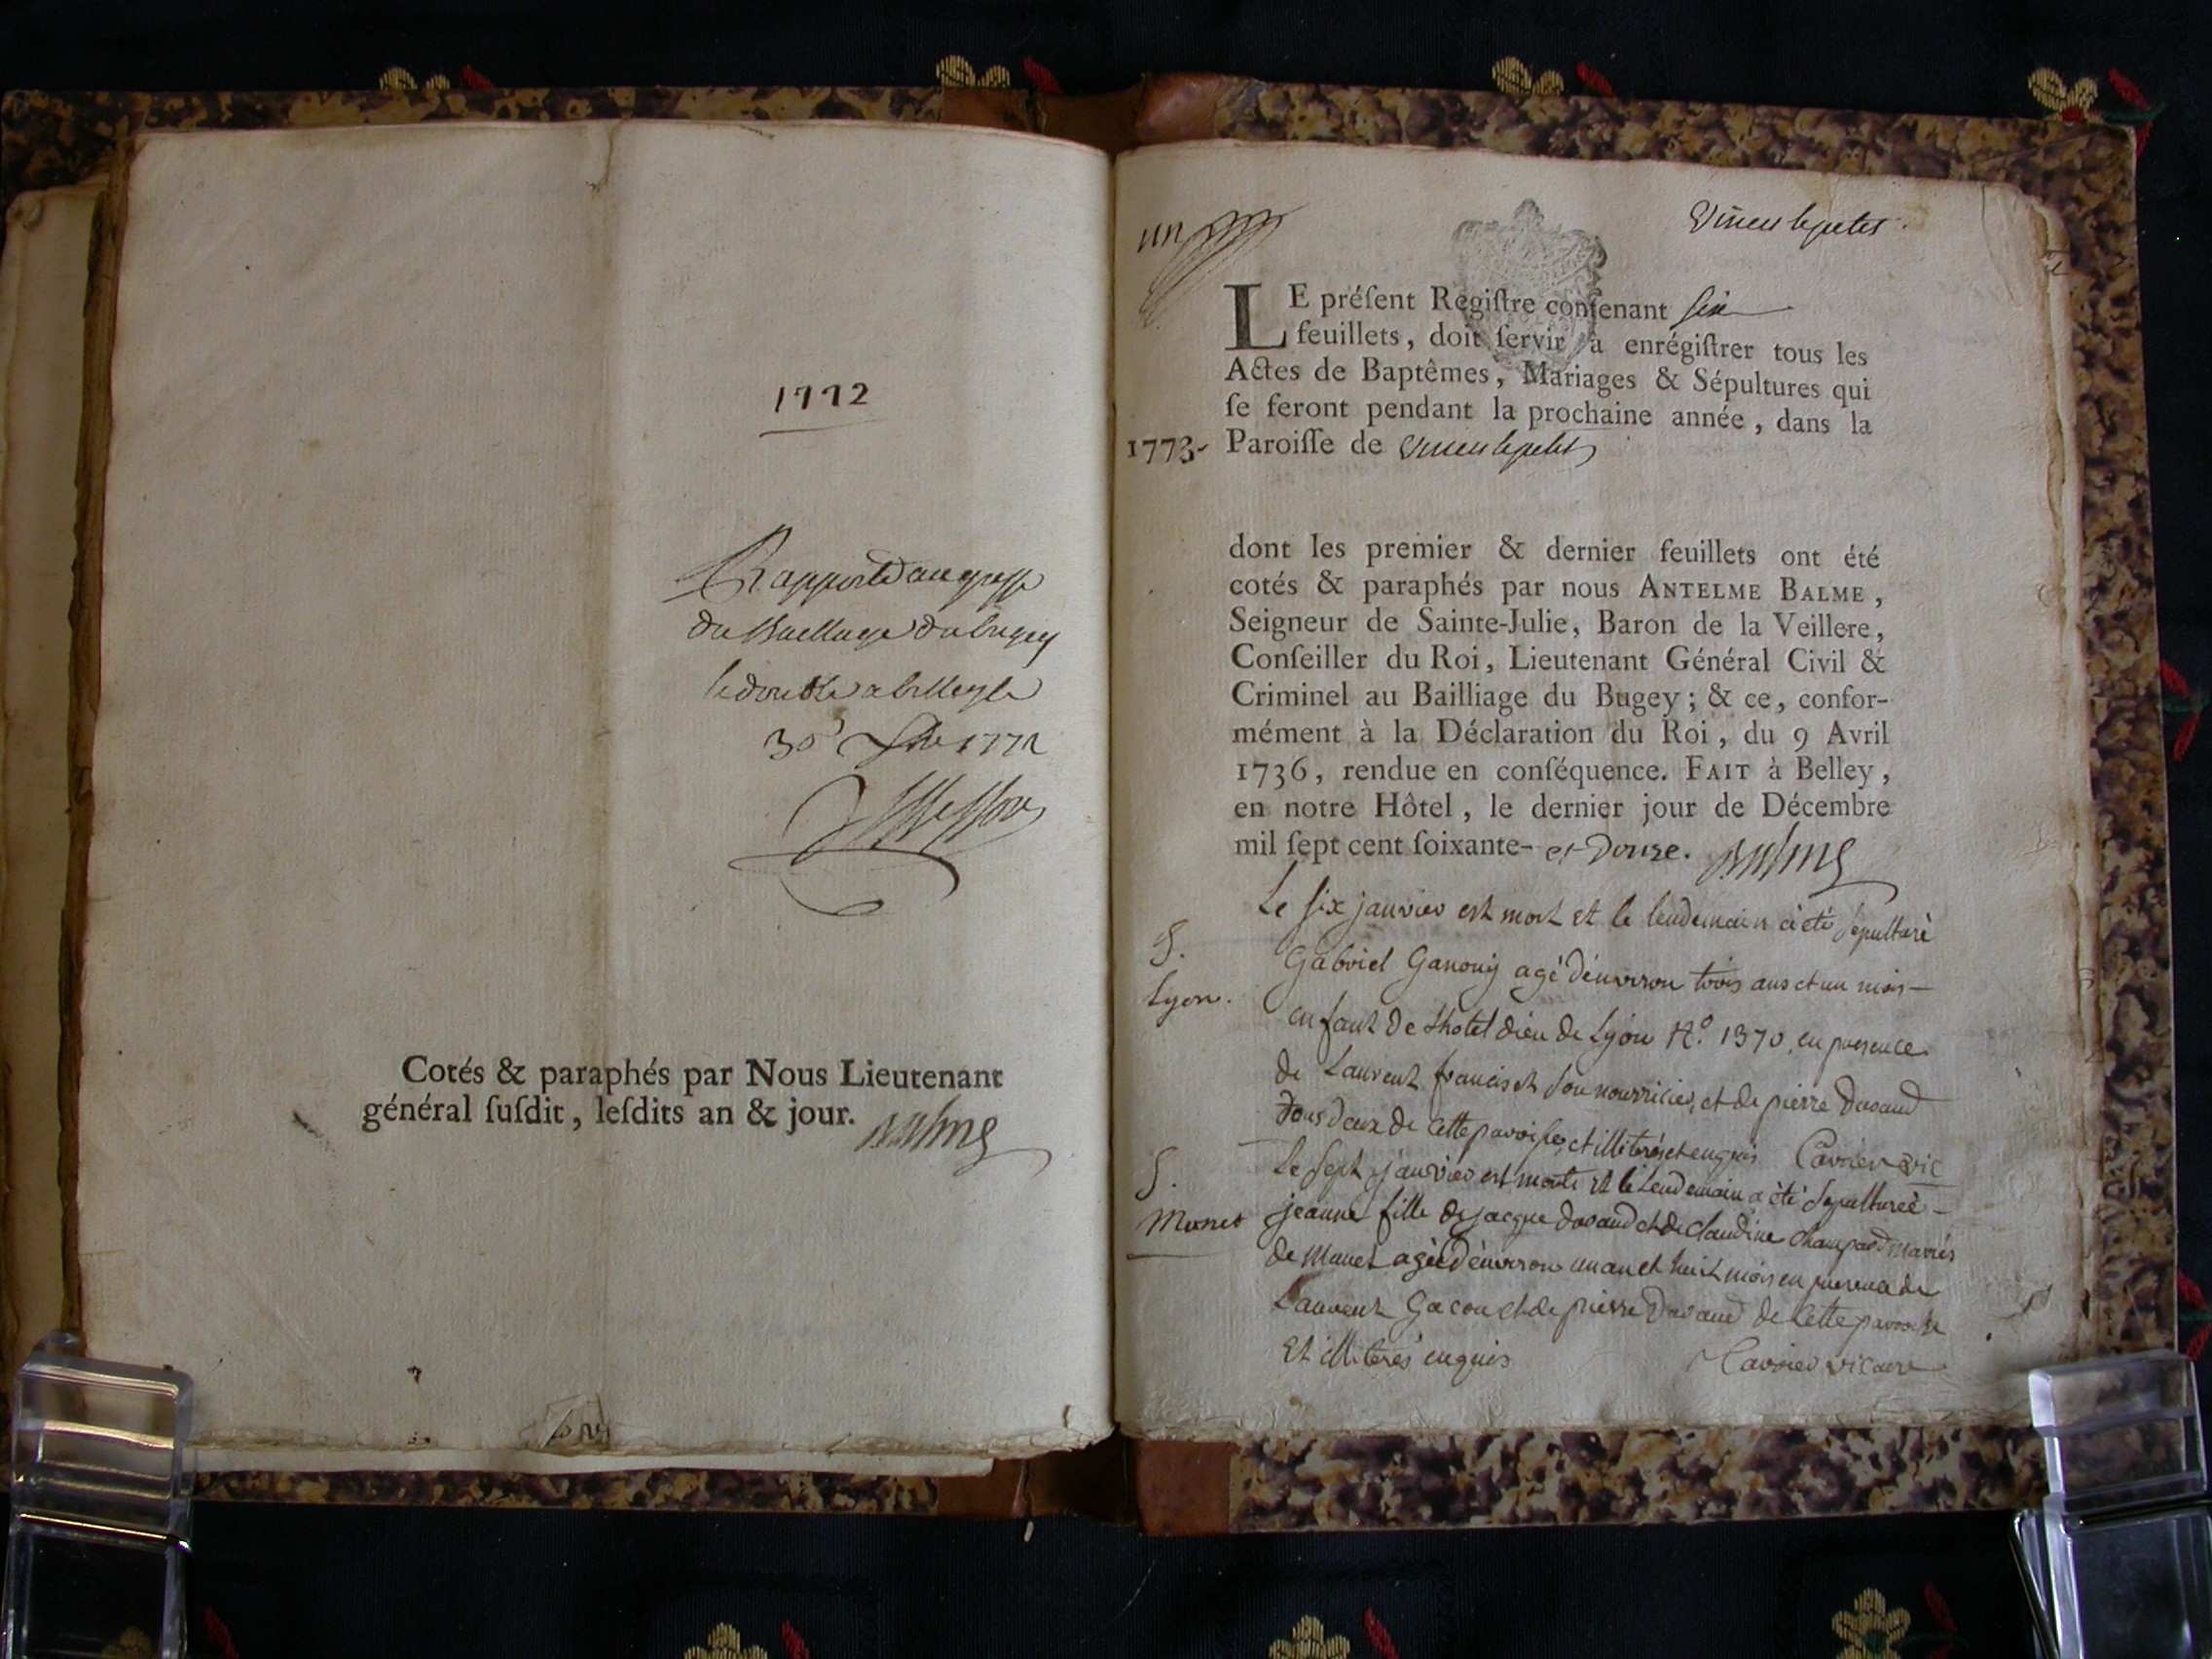 1772
Rapporté au greffe
du Bailliage du bugey
le double a belley le
30 1772
Cotés & paraphés par Nous Lieutenant
général ſuſdit, leſdits an & jour.
Balme
un
Vineu le petit
LE préſent Regiſtre contenant six
feuillets, doit ſervir à enrégiſtrer tous les
Actes de Baptêmes, Mariages & Sépultures qui
ſe feront pendant la prochaine année, dans la
1773- Paroiſſe de Vineu le petit
dont les premier & dernier feuillets ont été
cotés & paraphés par nous ANTELME BALME,
Seigneur de Sainte-Julie, Baron de la Veillere,
Conſeiller du Roi, Lieutenant Général Civil &
Criminel au Bailliage du Bugey; & ce, confor-
mément à la Déclaration du Roi, du 9 Avril
1736, rendue en conſéquence. FAIT à Belley,
en notre Hôtel, le dernier jour de Décembre
mil ſept cent ſoixante- et Douze. Balme
Le six janvier est mort et le lendemain à été sepulturé
S. Gabriel Ganouy agé d'environ trois ans et un mois -
Lyon. enfant de l'hotel dieu de Lyon N.o 1370 en presence
de Laurent franciset son nourricier, et de pierre Davaud
tous deux de cette paroisse, et illiterés et enquis Cavrier vic
S. Le sept janvier est morte et le lendemain a été sepulturée -
Munet jeanne fille de jacque davaud et de claudine champavd mariés
de Munet agée d'environ un an et huit mois en presence de
Laurent Gacon et de pierre Davaud de cette paroisse
Et illiterés enquis Cavrier vicaire